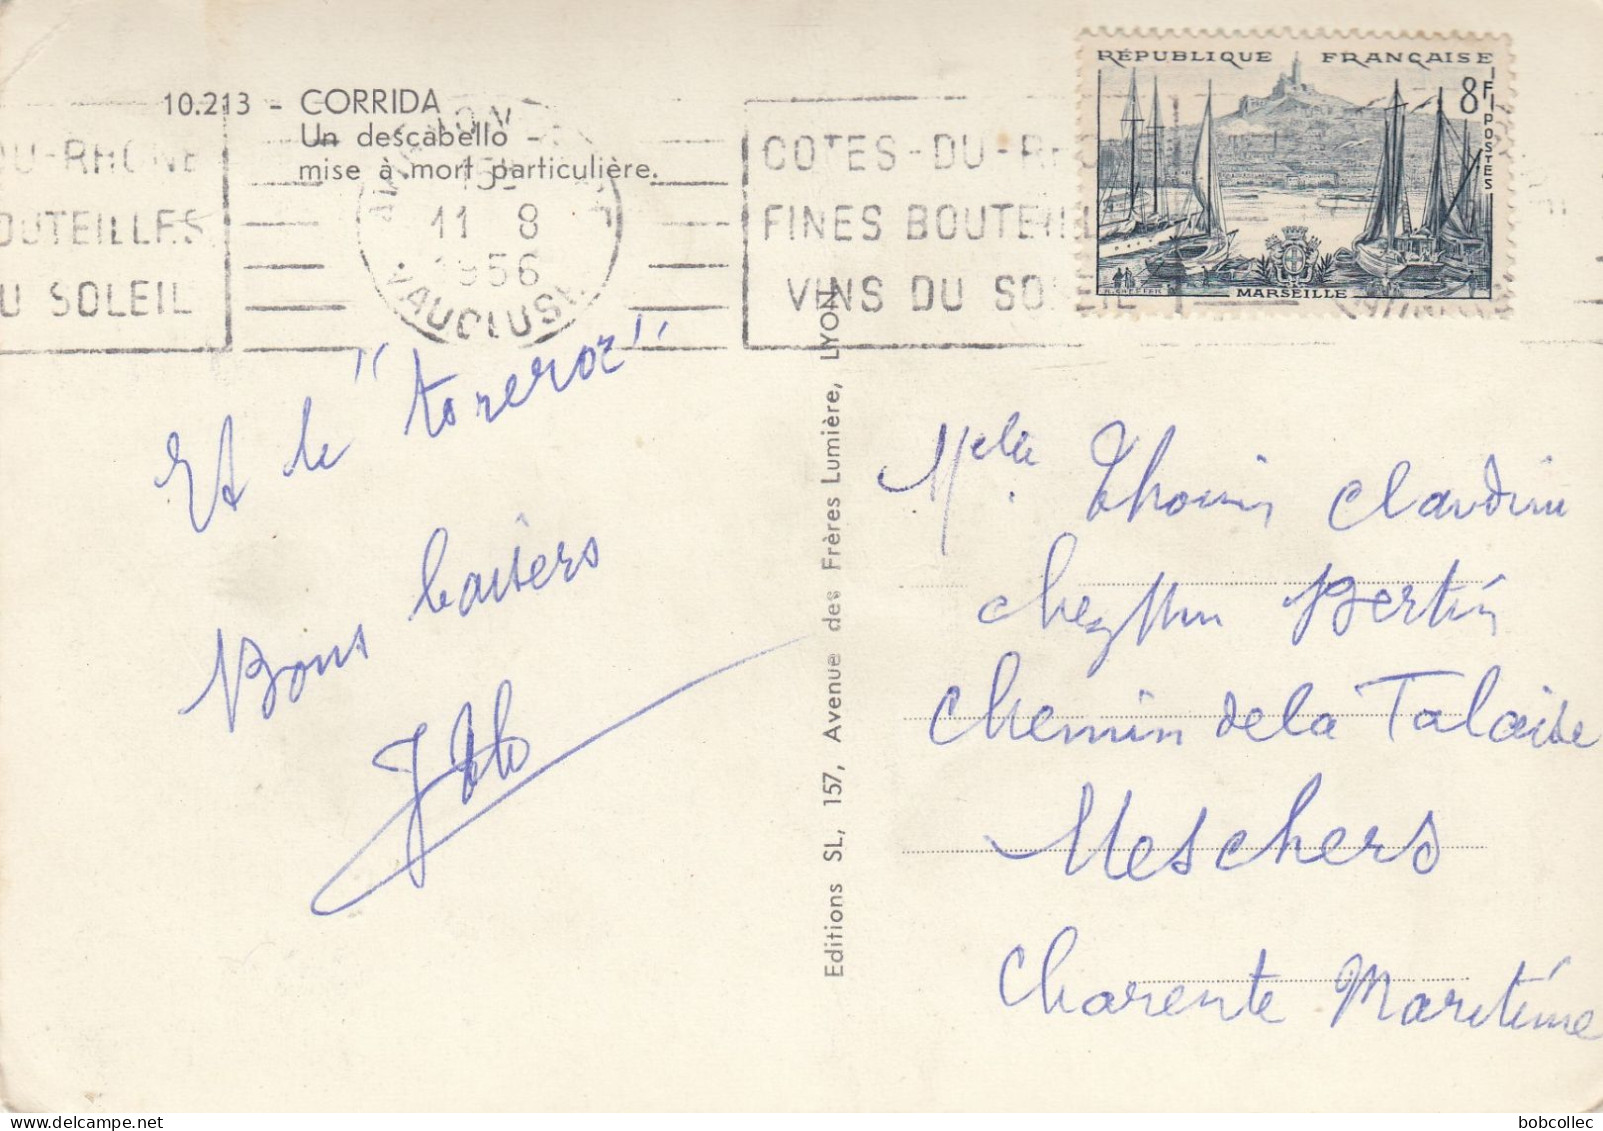 10.213 - CORRIDA
Un descabello -
mise à mort particulière.
DU-RHONE
BOUTEILLES
DU SOLEIL
AVIGNON
15
11 8
1956
VAUCLUSE
COTES-DU-RHONE
FINES BOUTEILLES
VINS DU SOLEIL
RÉPUBLIQUE FRANÇAISE
8F
POSTES
MARSEILLE
Et le "toreroz"
Bons baisers
Editions SL, 157, Avenue des Frères Lumière, LYON
Melle Thouin Claudine
chez Mme Bertin
Chemin de la Talaise
Meschers
Charente Maritime
bobcollec